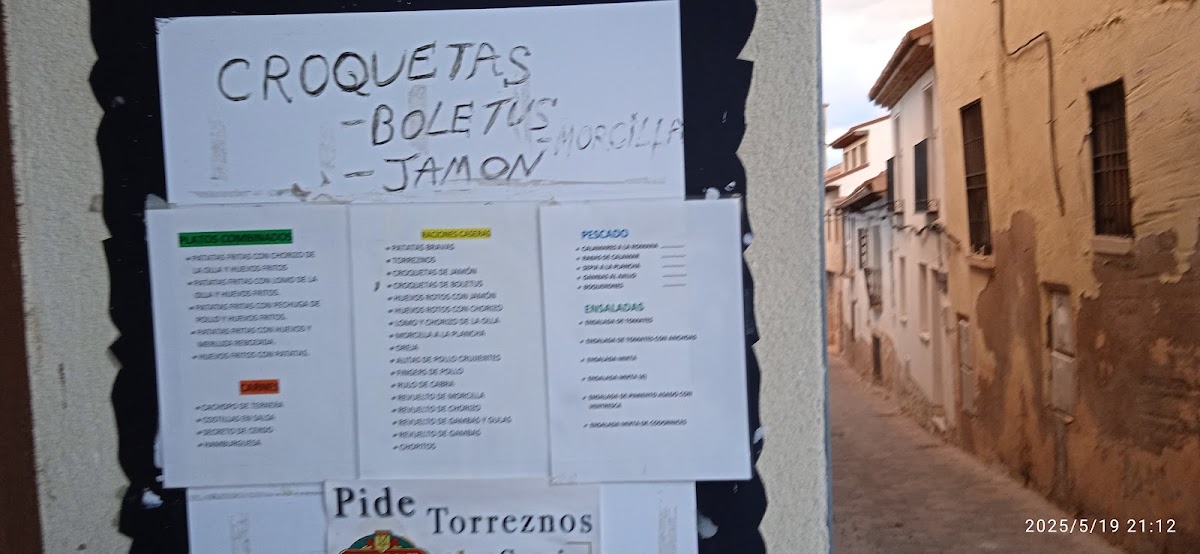 CROQUETAS
-BOLETUS
-MORCILLA
-JAMON
PLATOS COMBINADOS
PATATAS FRITAS CON CHORIZO DE
LA OLLA Y HUEVOS FRITOS
PATATAS FRITAS CON LOMO DE LA
OLLA Y HUEVOS FRITOS.
PATATAS FRITAS CON PECHUGA DE
POLLO Y HUEVOS FRITOS.
PATATAS FRITAS CON HUEVOS Y
MERLUZA REBOZADA.
HUEVOS FRITOS CON PATATAS.
CARNES
CACHOPO DE TERNERA
COSTILLAS EN SALSA
SECRETO DE CERDO
HAMBURGUESA
RACIONES CASERAS
PATATAS BRAVAS
TORREZNOS
CROQUETAS DE JAMÓN
CROQUETAS DE BOLETUS
HUEVOS ROTOS CON JAMÓN
HUEVOS ROTOS CON CHORIZO
LOMO Y CHORIZO DE LA OLLA
MORCILLA A LA PLANCHA
OREJA
ALITAS DE POLLO CRUJIENTES
FINGERS DE POLLO
RULO DE CABRA
REVUELTO DE MORCILLA
REVUELTO DE CHORIZO
REVUELTO DE GAMBAS Y GULAS
REVUELTO DE GAMBAS
CHORITOS
PESCADO
CALAMARES A LA ROMANA
RABAS DE CALAMAR
SEPIA A LA PLANCHA
GAMBAS AL AJILLO
BOQUERONES
ENSALADAS
ENSALADA DE TOMATES
ENSALADA DE TOMATES CON ANCHOAS
ENSALADA MIXTA
ENSALADA MIXTA
ENSALADA DE PIMIENTO ASADO CON
VENTRESCA
ENSALADA MIXTA DE CODORNICES
Pide Torreznos
2025/5/19 21:12